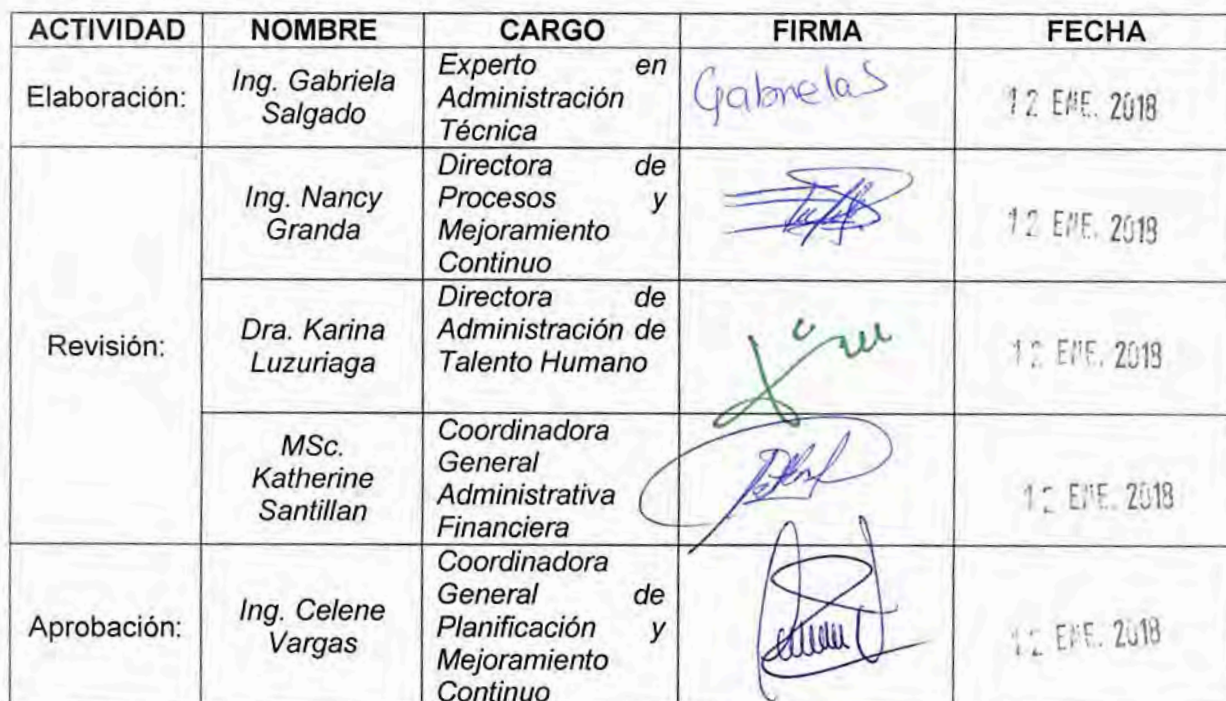 ACTIVIDAD NOMBRE CARGO FIRMA FECHA
Elaboración:
Ing. Gabriela
Salgado
Experto en
Administración
Técnica
GabrielaS
12 ENE. 2018
Revisión:
Ing. Nancy
Granda
Directora de
Procesos y
Mejoramiento
Continuo
12 ENE. 2018
Dra. Karina
Luzuriaga
Directora de
Administración de
Talento Humano
12 ENE. 2018
MSc.
Katherine
Santillan
Coordinadora
General
Administrativa
Financiera
12 ENE. 2018
Aprobación:
Ing. Celene
Vargas
Coordinadora
General de
Planificación y
Mejoramiento
Continuo
12 ENE. 2018